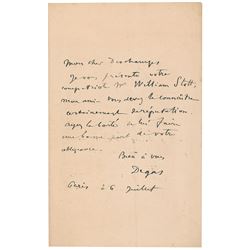 Mon cher Deschamps
Je vous présente votre
compatriote Mr William Stott,
mon ami. Vous devez le connaître
certainement de réputation
ayez la bonté de lui faire
une bonne part de votre
obligeance.
Bien à vous
Degas
Paris 6 Juillet